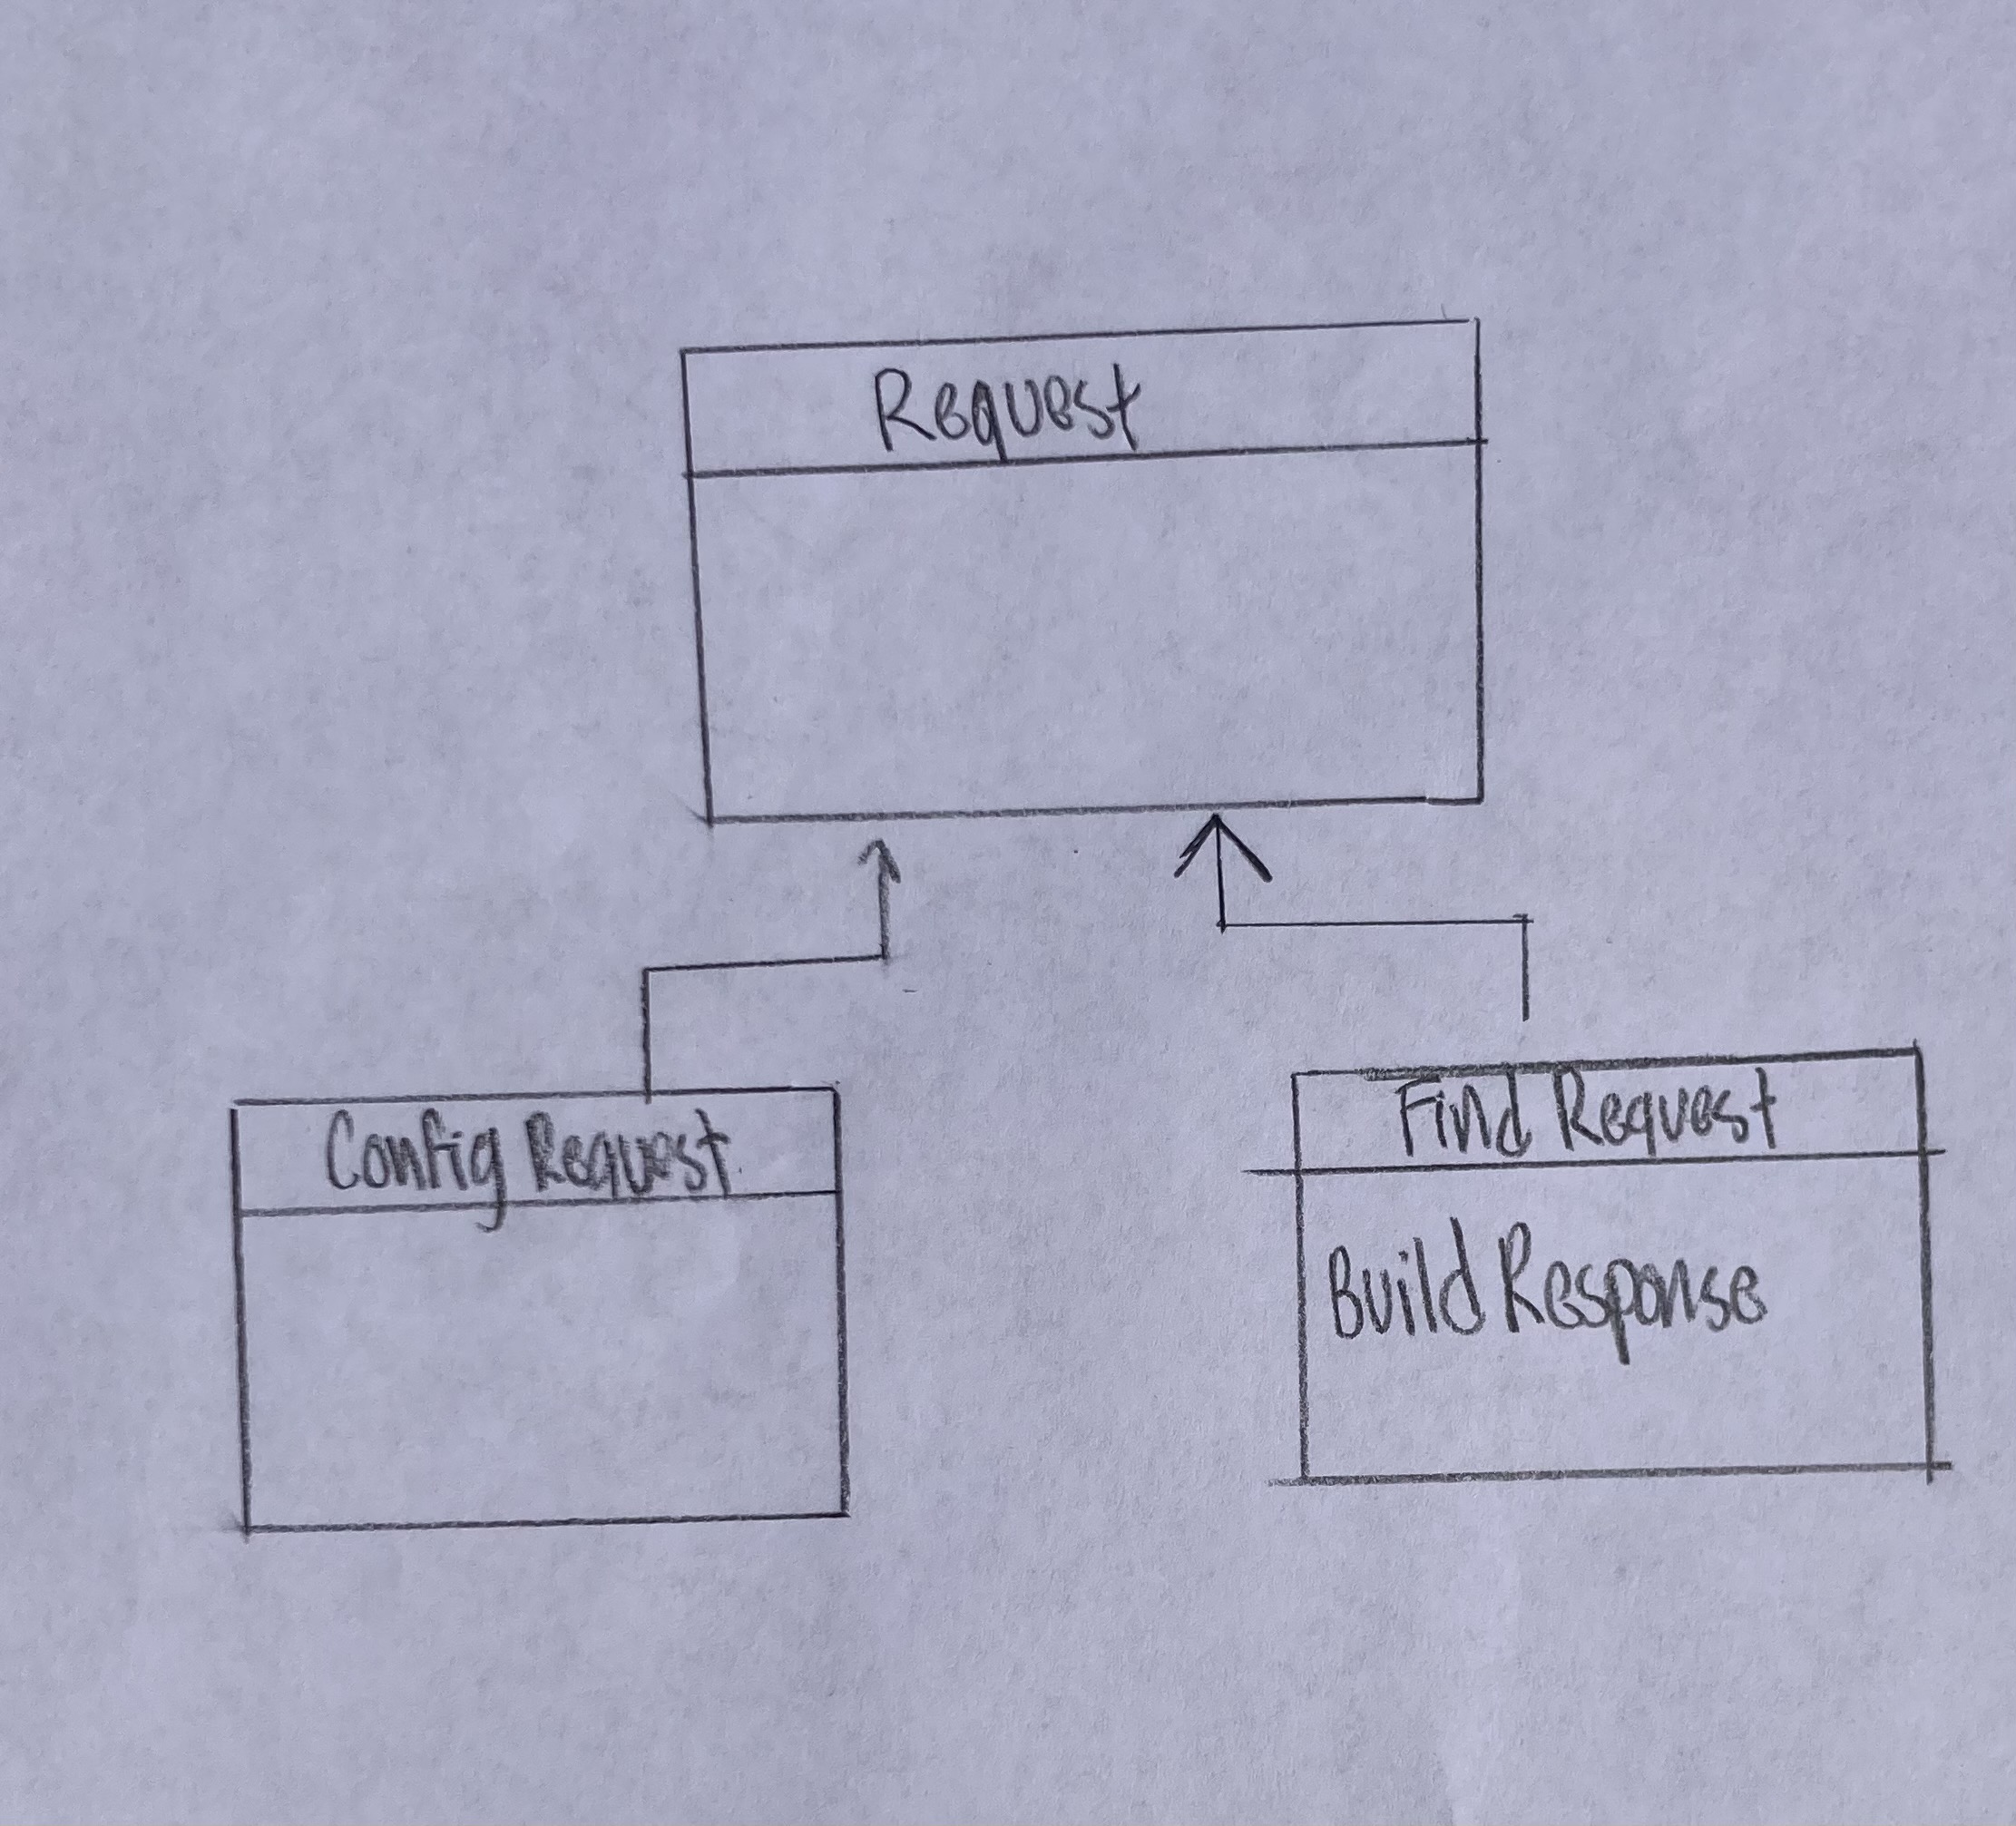 Request
Config Request
Find Request
Build Response